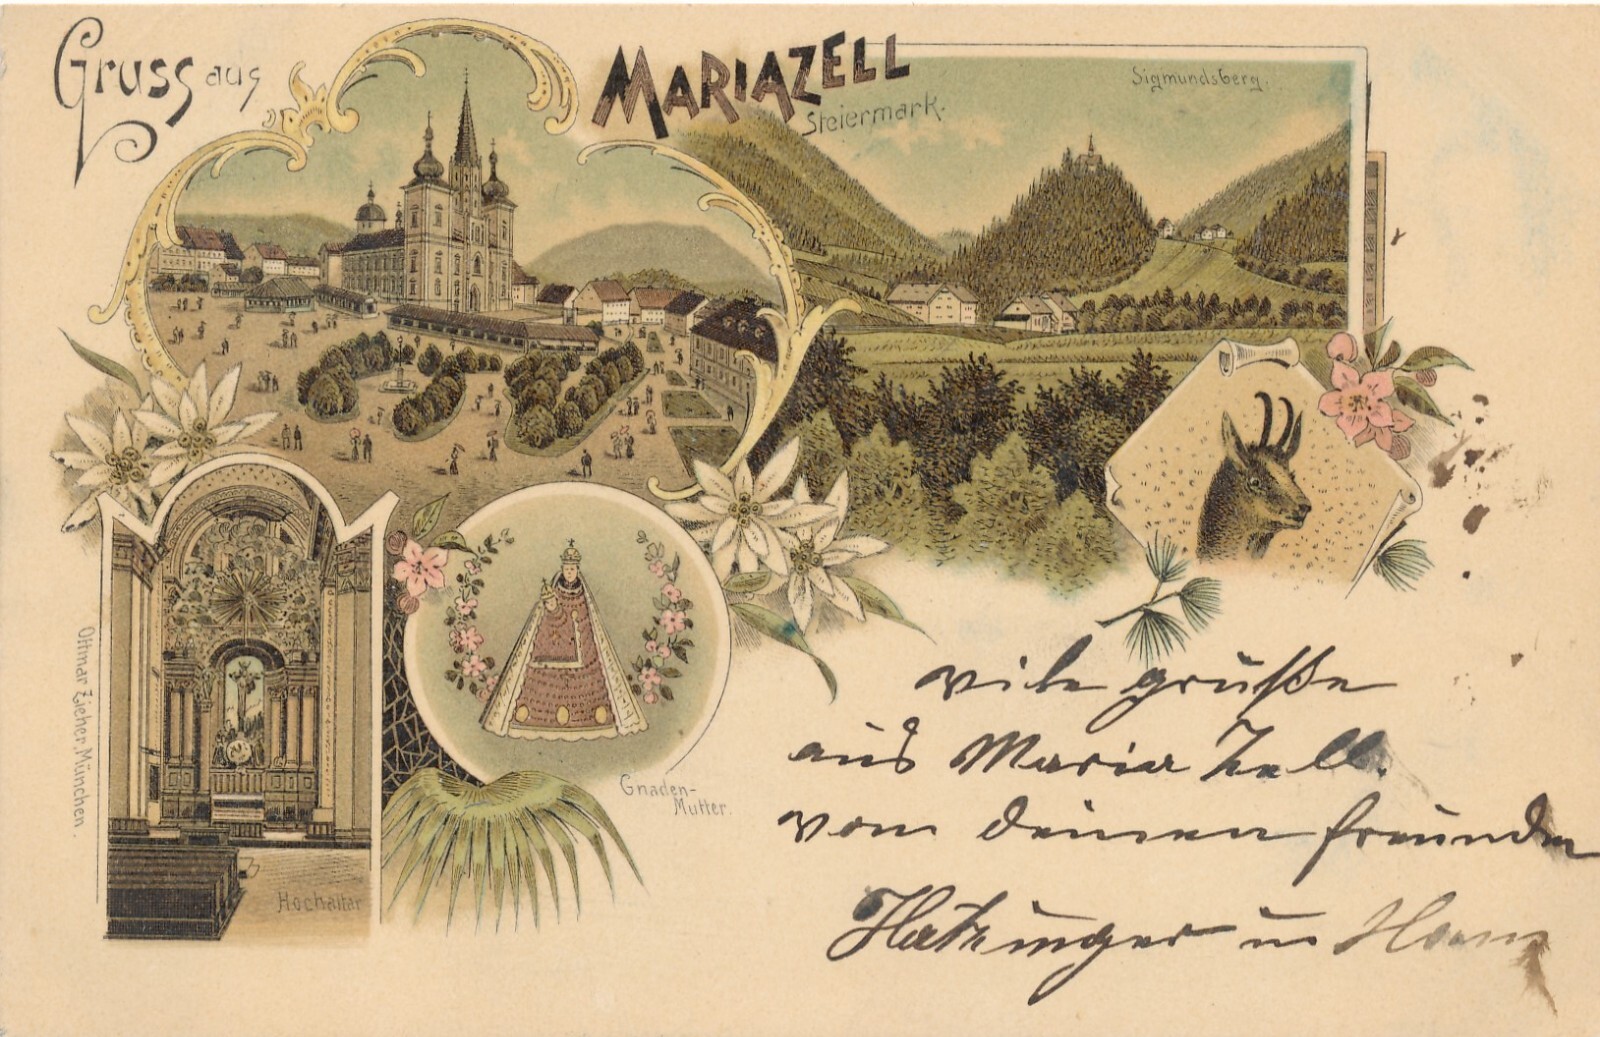 Gruss aus
MARIAZELL
Steiermark.
Sigmundsberg.
Ottmar Zieher, München.
Gnaden-
Mutter.
Hochaltar
vile grüße
aus Maria Zell.
von deinen freunden
Hatzinger u